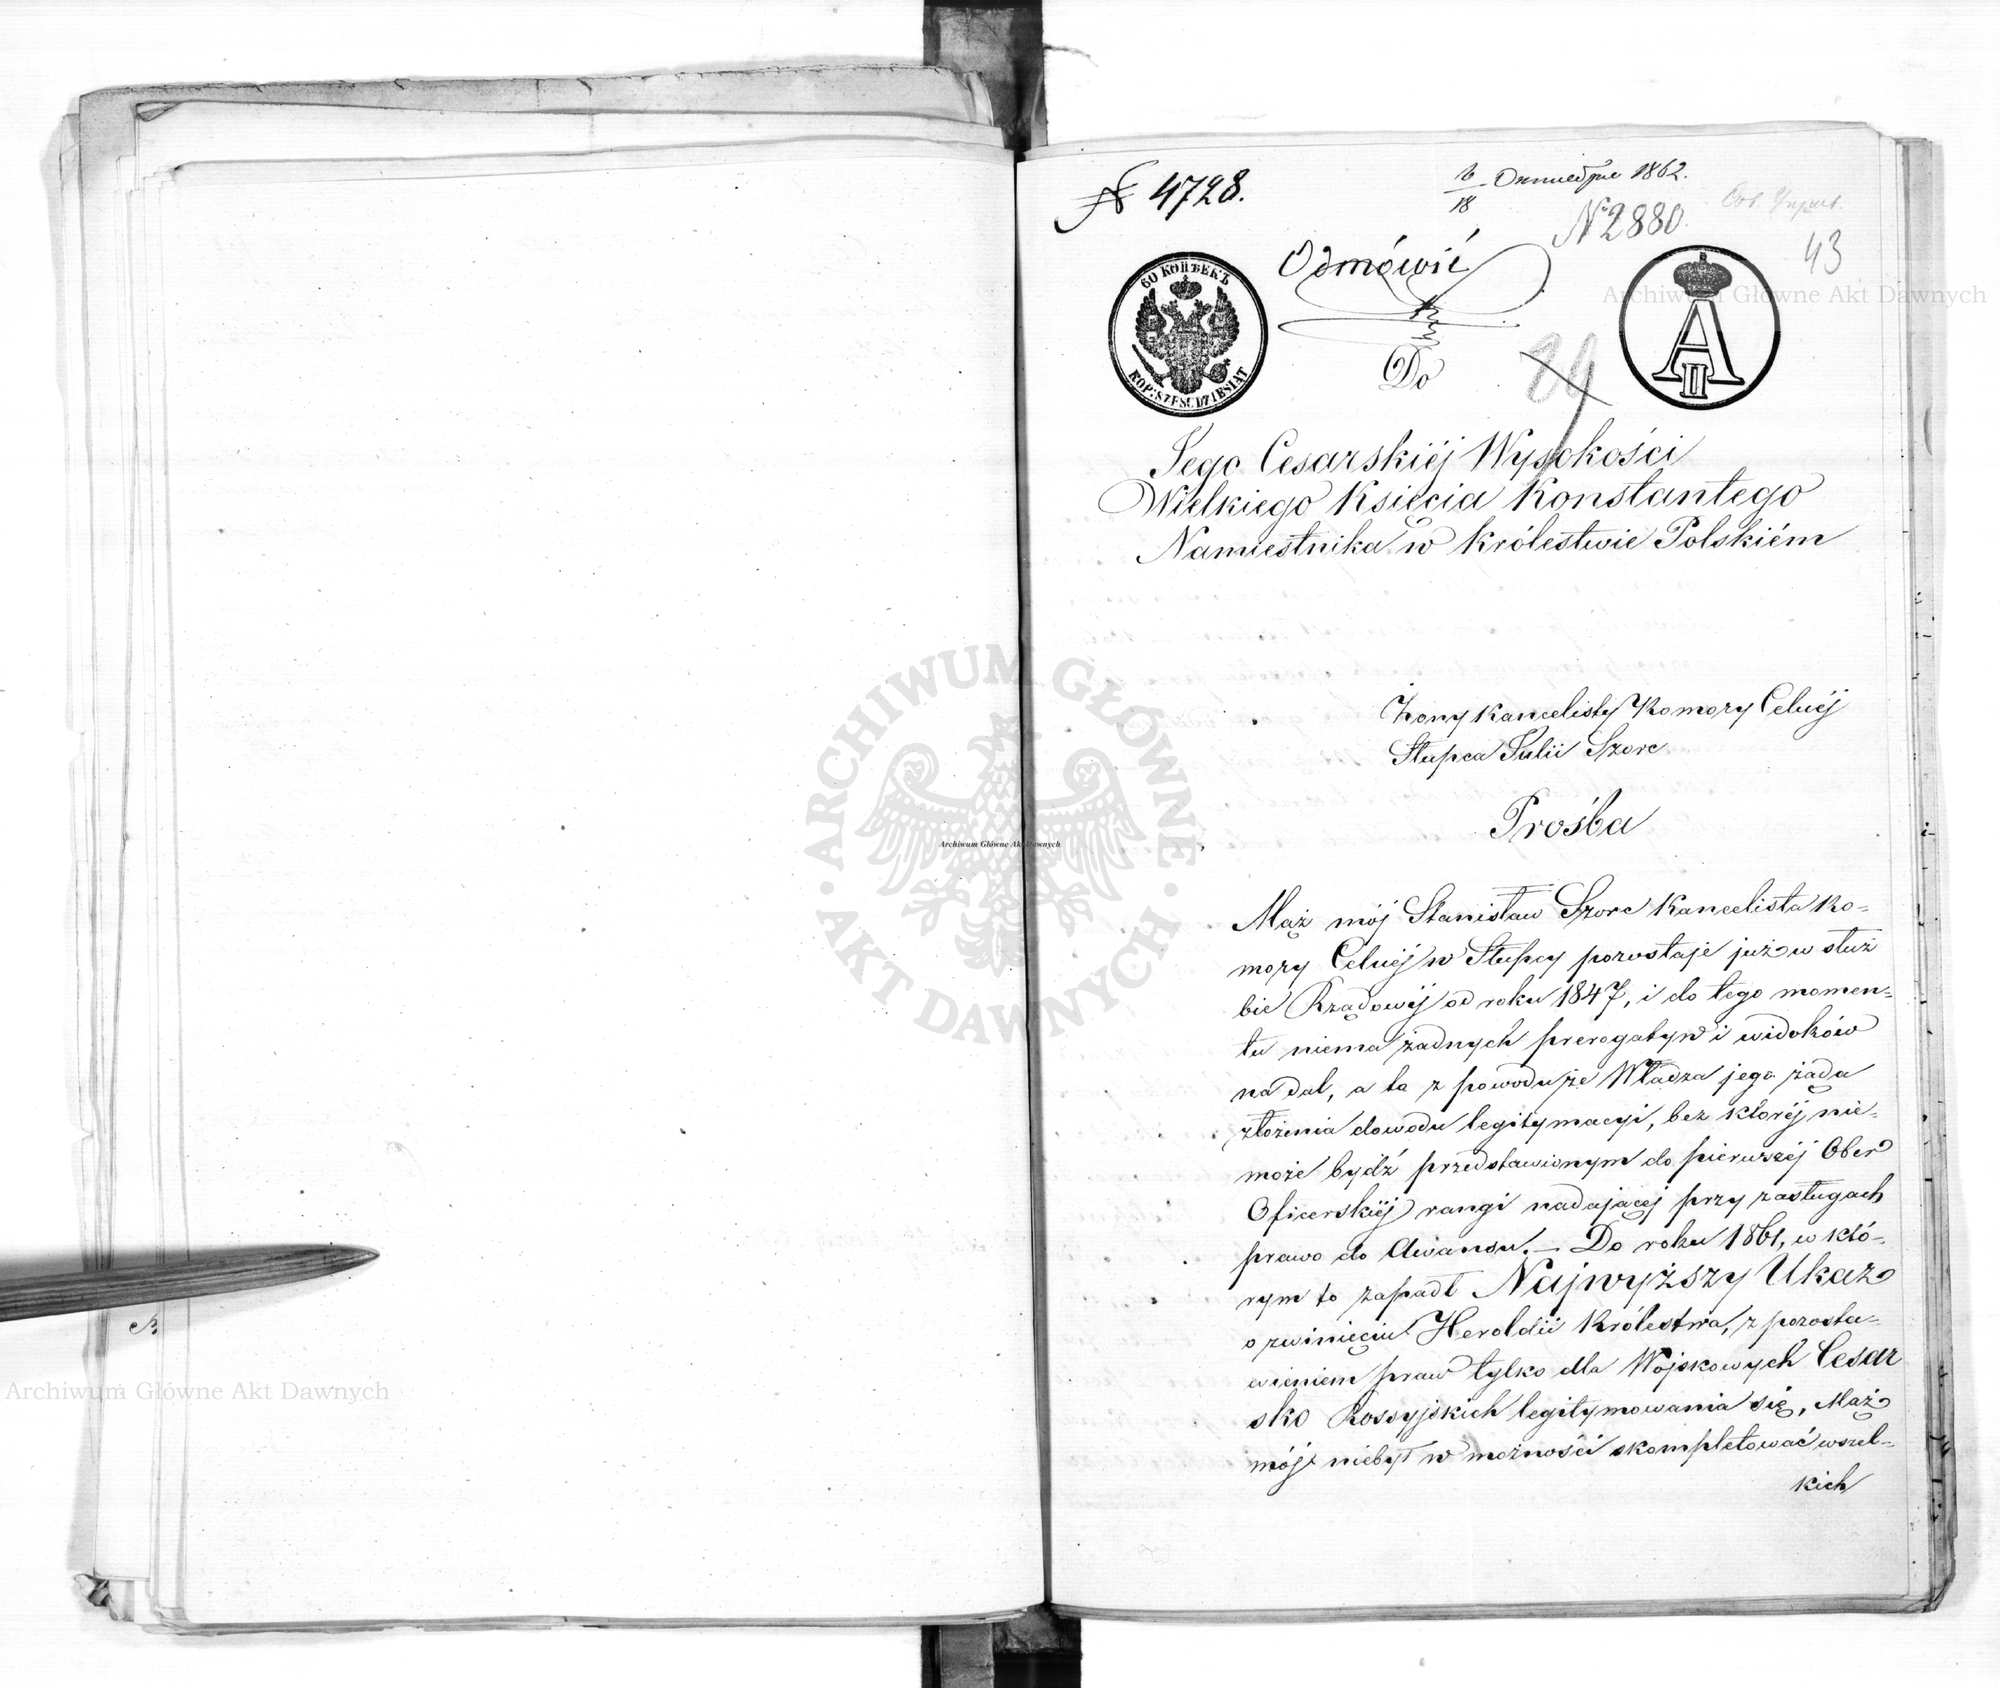 № 4728.
6/18 Октября 1862.
№ 2880.
43
Odmówić
60 КОПѢЕКЪ
KOP: SZESCDZIESIAT
A II
84
Do
Jego Cesarskiéj Wysokości
Wielkiego Księcia Konstantego
Namiestnika w Królestwie Polskiém
Żony Kancelisty Komory Celnéj
Słupca Julii Szorc
Prośba
Mąż mój Stanisław Szorc Kancelista Ko-
mory Celnéj w Słupcy pozostaje już w służ
bie Rządowéj od roku 1847, i do tego momen-
tu niema żadnych prerogatyw i widoków
nadal, a to z powodu że Władza jego żąda
złożenia dowodu legitymacyi, bez któréj nie-
może bydź przedstawionym do pierwszéj Ober
Oficerskiéj rangi nadającéj przy zasługach
prawo do Awansu. — Do roku 1861, w któ-
rym to zapadł Najwyższy Ukaz
o zwinięciu Heroldii Królestwa, z pozosta-
wieniem praw tylko dla Wojskowych Cesar
sko Rossyjskich legitymowania się, Mąż
mój niebył w możności skompletować wszel-
kich
Archiwum Główne Akt Dawnych
ARCHIWUM GŁÓWNE AKT DAWNYCH
Archiwum Główne Akt Dawnych
Archiwum Główne Akt Dawnych